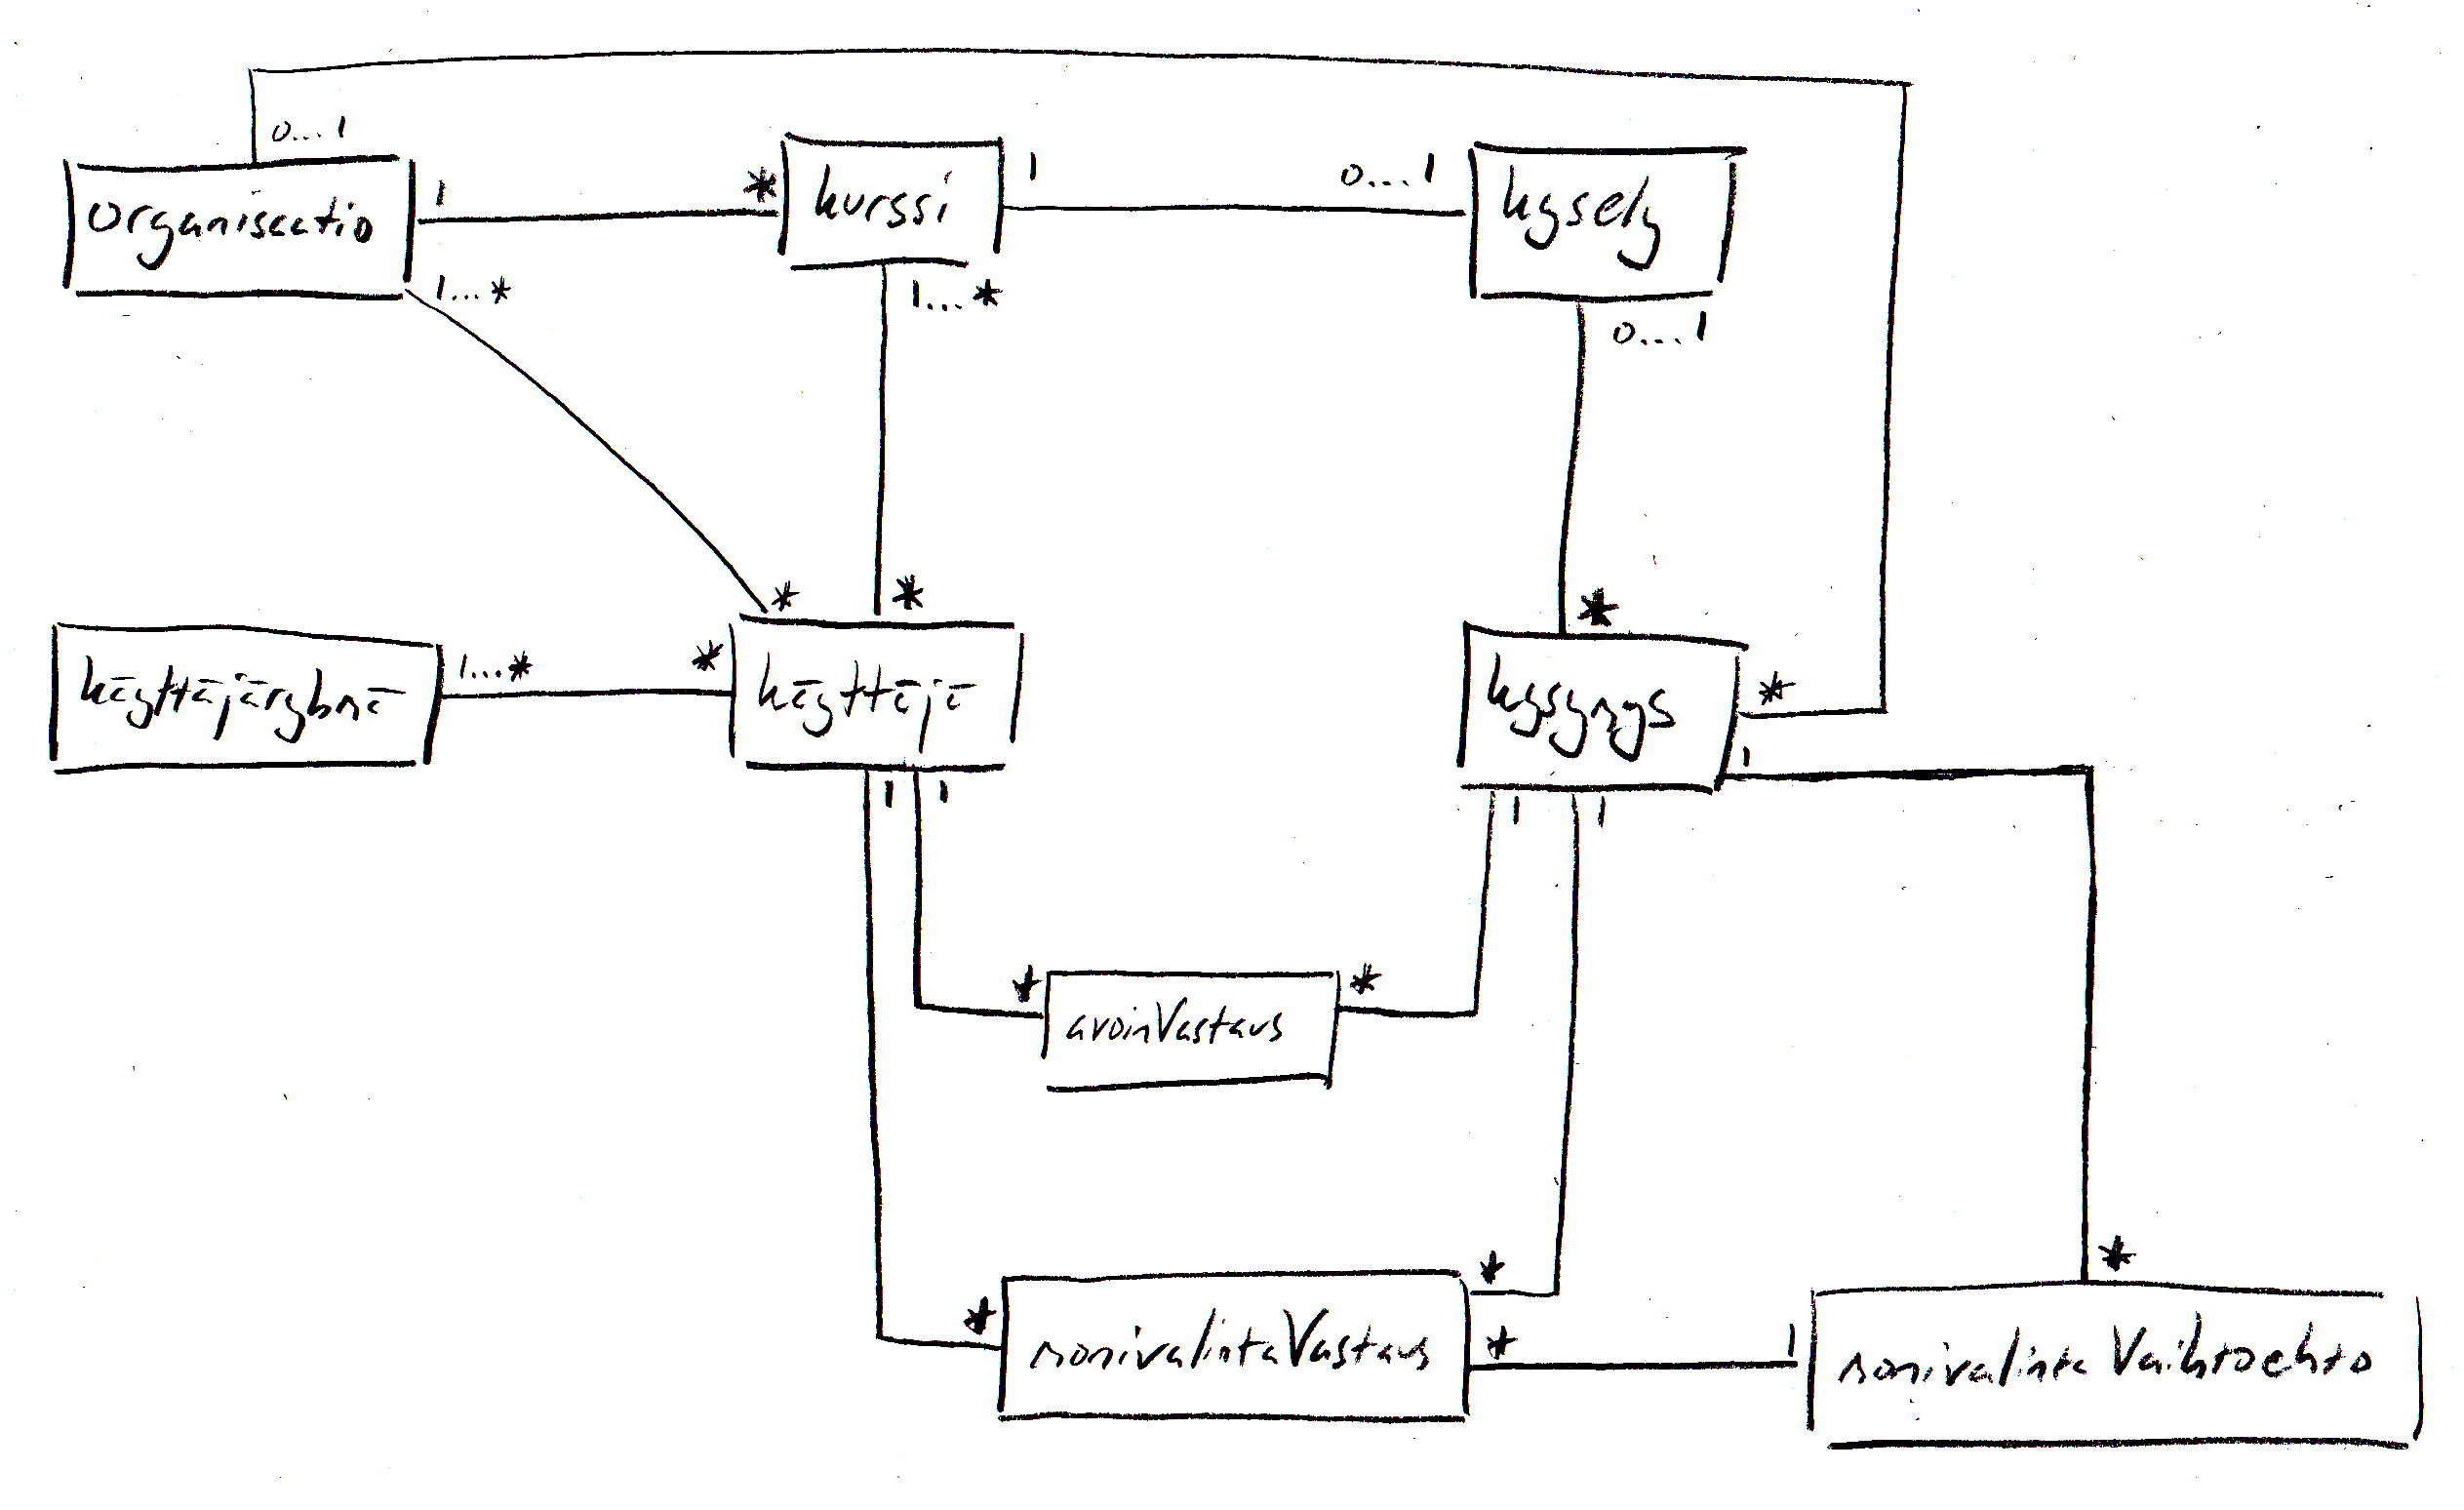 0...1
organisaatio
1
*
kurssi
1
0...1
kysely
1...*
1...*
0...1
*
*
*
käyttäjäryhmä
1...*
*
käyttäjä
kysymys
*
1
1
1
1
1
*
avoinVastaus
*
*
*
*
monivalintaVastaus
*
1
monivalintaVaihtoehto